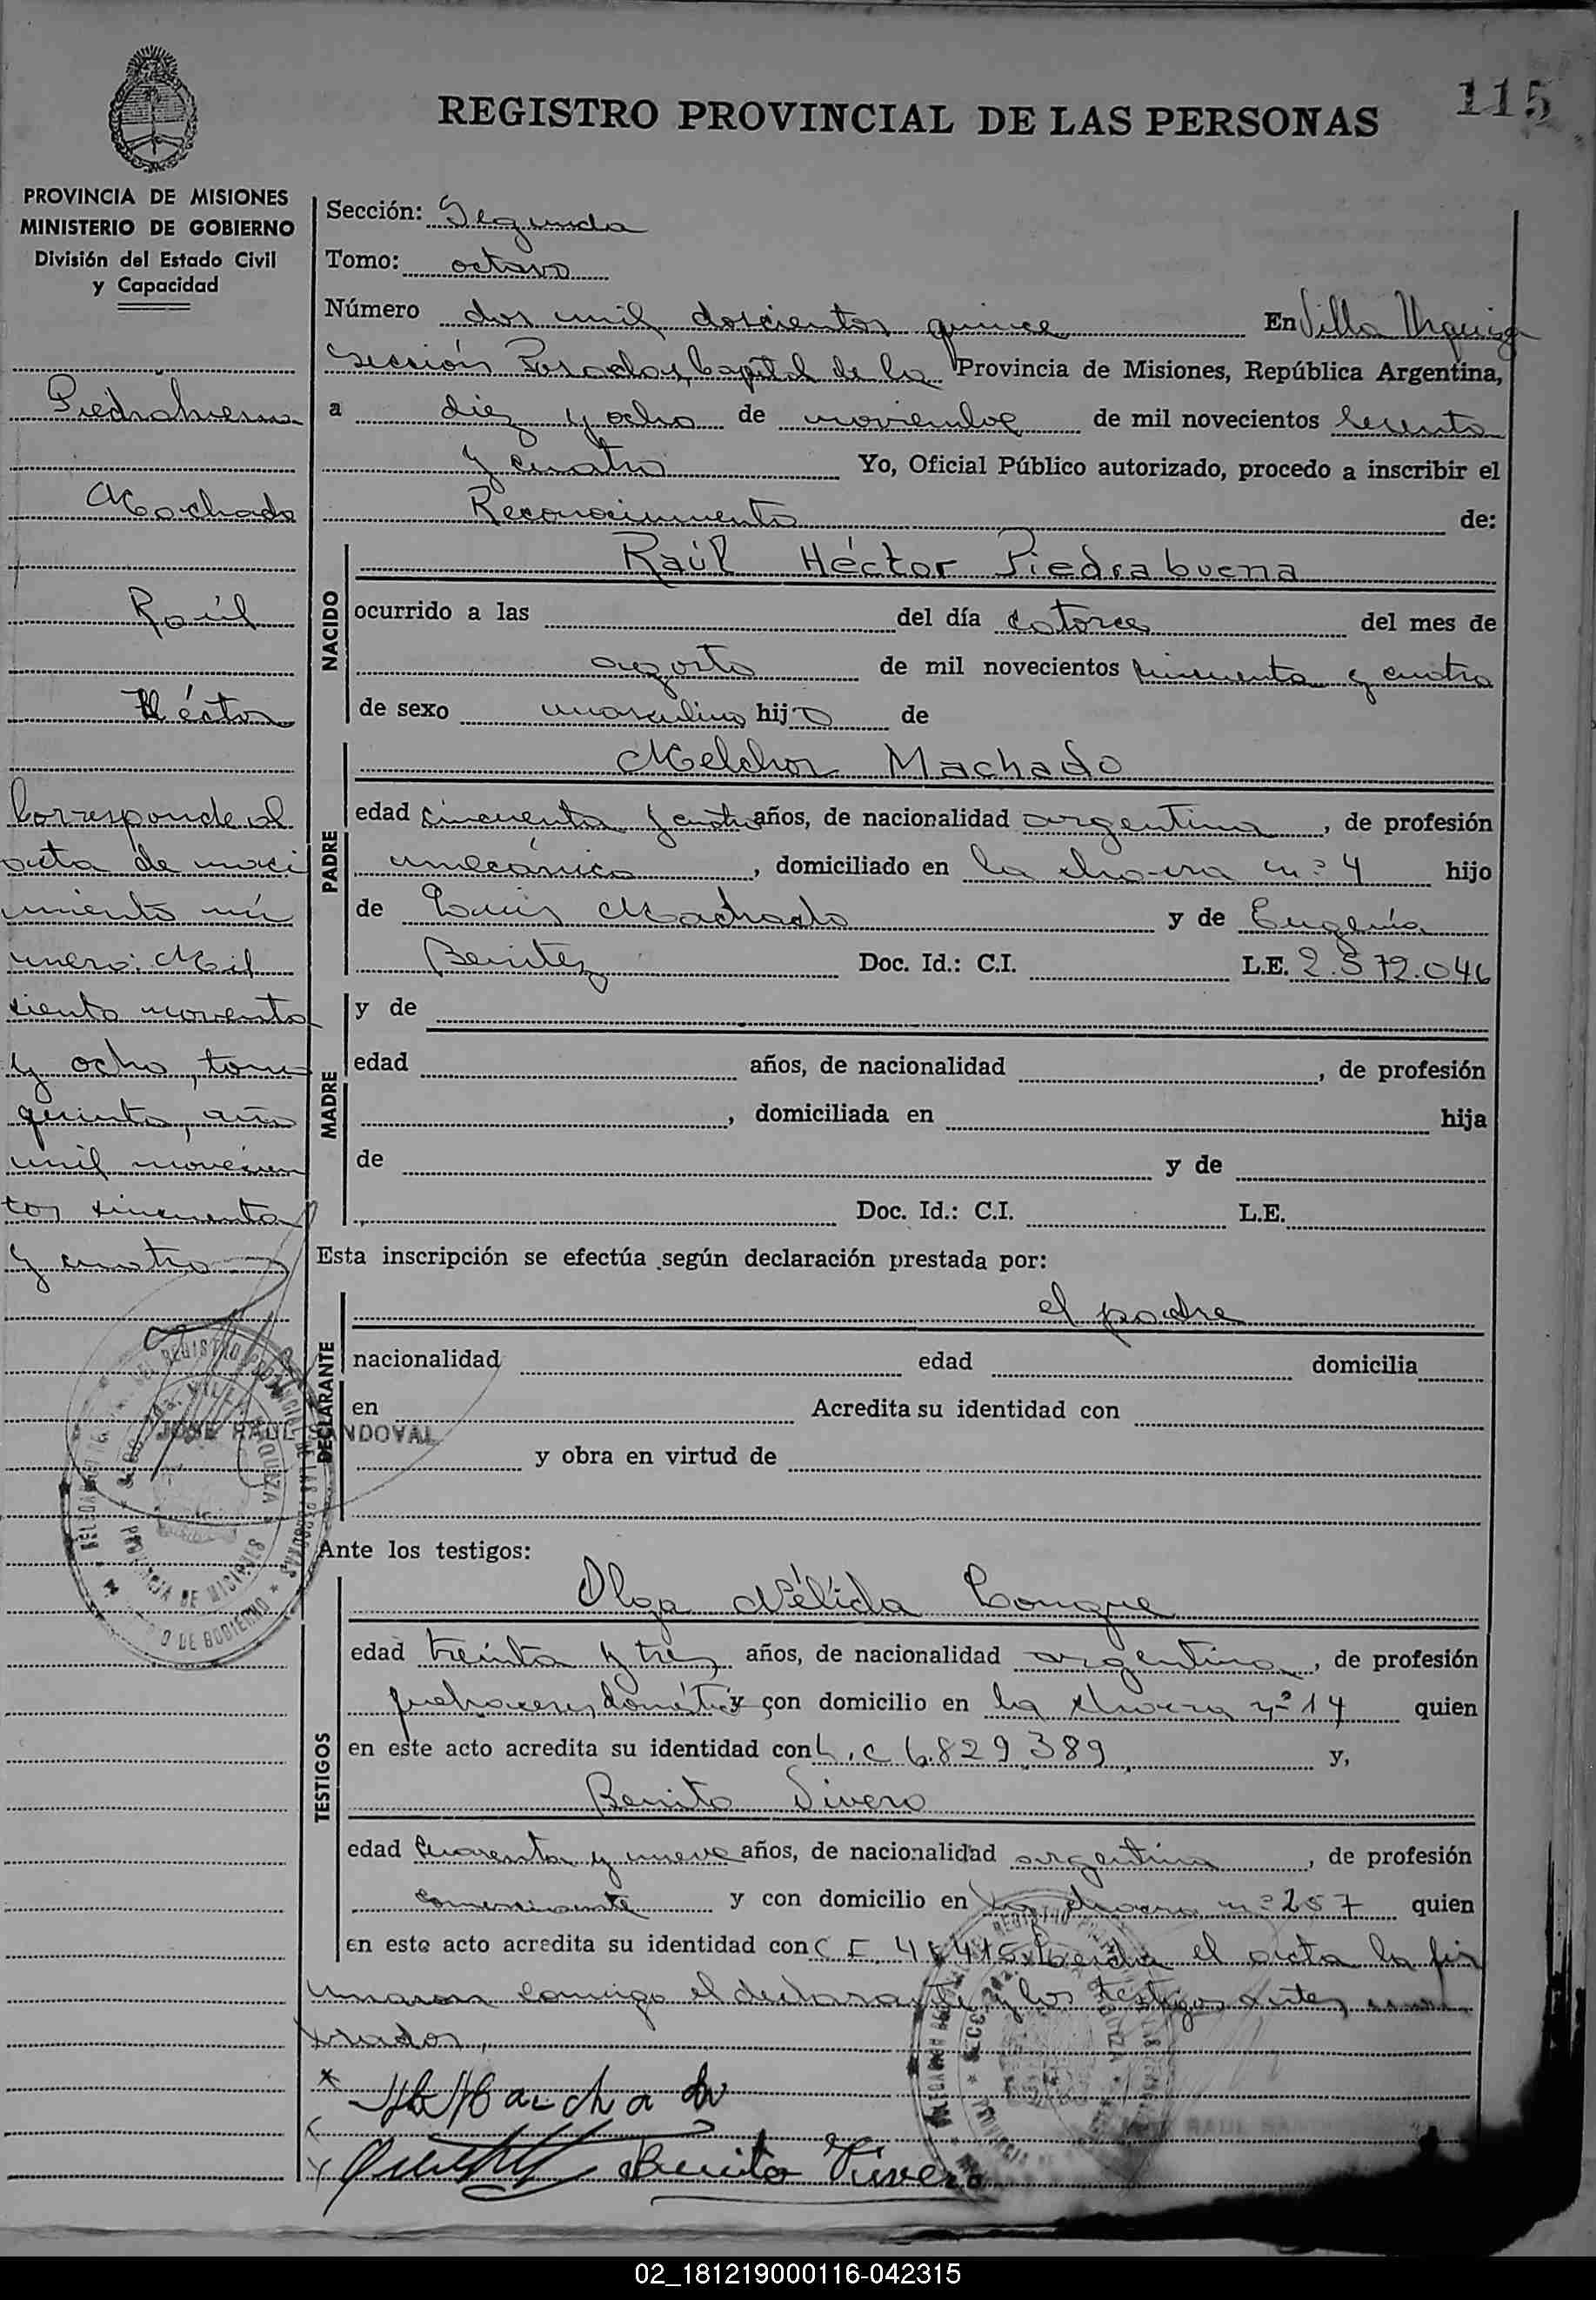 115
REGISTRO PROVINCIAL DE LAS PERSONAS
PROVINCIA DE MISIONES
MINISTERIO DE GOBIERNO
División del Estado Civil
y Capacidad
Piedrabuena
Machado
Raúl
Héctor
Corresponde al
acta de naci
miento nú
mero: Mil
ciento noventa
y ocho, tomo
quinto, año
mil novecien
tos cincuenta
y cuatro
JOSE RAUL SANDOVAL
Sección: Segunda
Tomo: octavo
Número dos mil doscientos quince En Villa Urquiza
sección Posadas, Capital de la Provincia de Misiones, República Argentina,
a diez y ocho de noviembre de mil novecientos sesenta
y cuatro Yo, Oficial Público autorizado, procedo a inscribir el
Reconocimiento de:
NACIDO
Raúl Héctor Piedrabuena
ocurrido a las del día catorce del mes de
agosto de mil novecientos cincuenta y cuatro
de sexo masculino hijo de
PADRE
Melchor Machado
edad cincuenta y cuatro años, de nacionalidad argentina, de profesión
mecánico, domiciliado en la chacra n° 4 hijo
de Luis Machado y de Eugenia
Benitez Doc. Id.: C.I. L.E. 2.572.046
MADRE
y de
edad años, de nacionalidad , de profesión
, domiciliada en hija
de y de
Doc. Id.: C.I. L.E.
Esta inscripción se efectúa según declaración prestada por:
DECLARANTE
el padre
nacionalidad edad domicilia
en Acredita su identidad con
y obra en virtud de
Ante los testigos:
TESTIGOS
Olga Nélida
edad treinta y tres años, de nacionalidad argentina, de profesión
quehaceres domést y con domicilio en la chacra n° 14 quien
en este acto acredita su identidad con L.C 6.829.389 y,
Benito Vivero
edad cuarenta y nueve años, de nacionalidad argentina, de profesión
comerciante y con domicilio en la chacra n° 257 quien
en este acto acredita su identidad con Leida el acta la fir
maron conmigo el declarante y los testigos antes men
cionados,
Machado
Benito Vivero
02_181219000116-042315